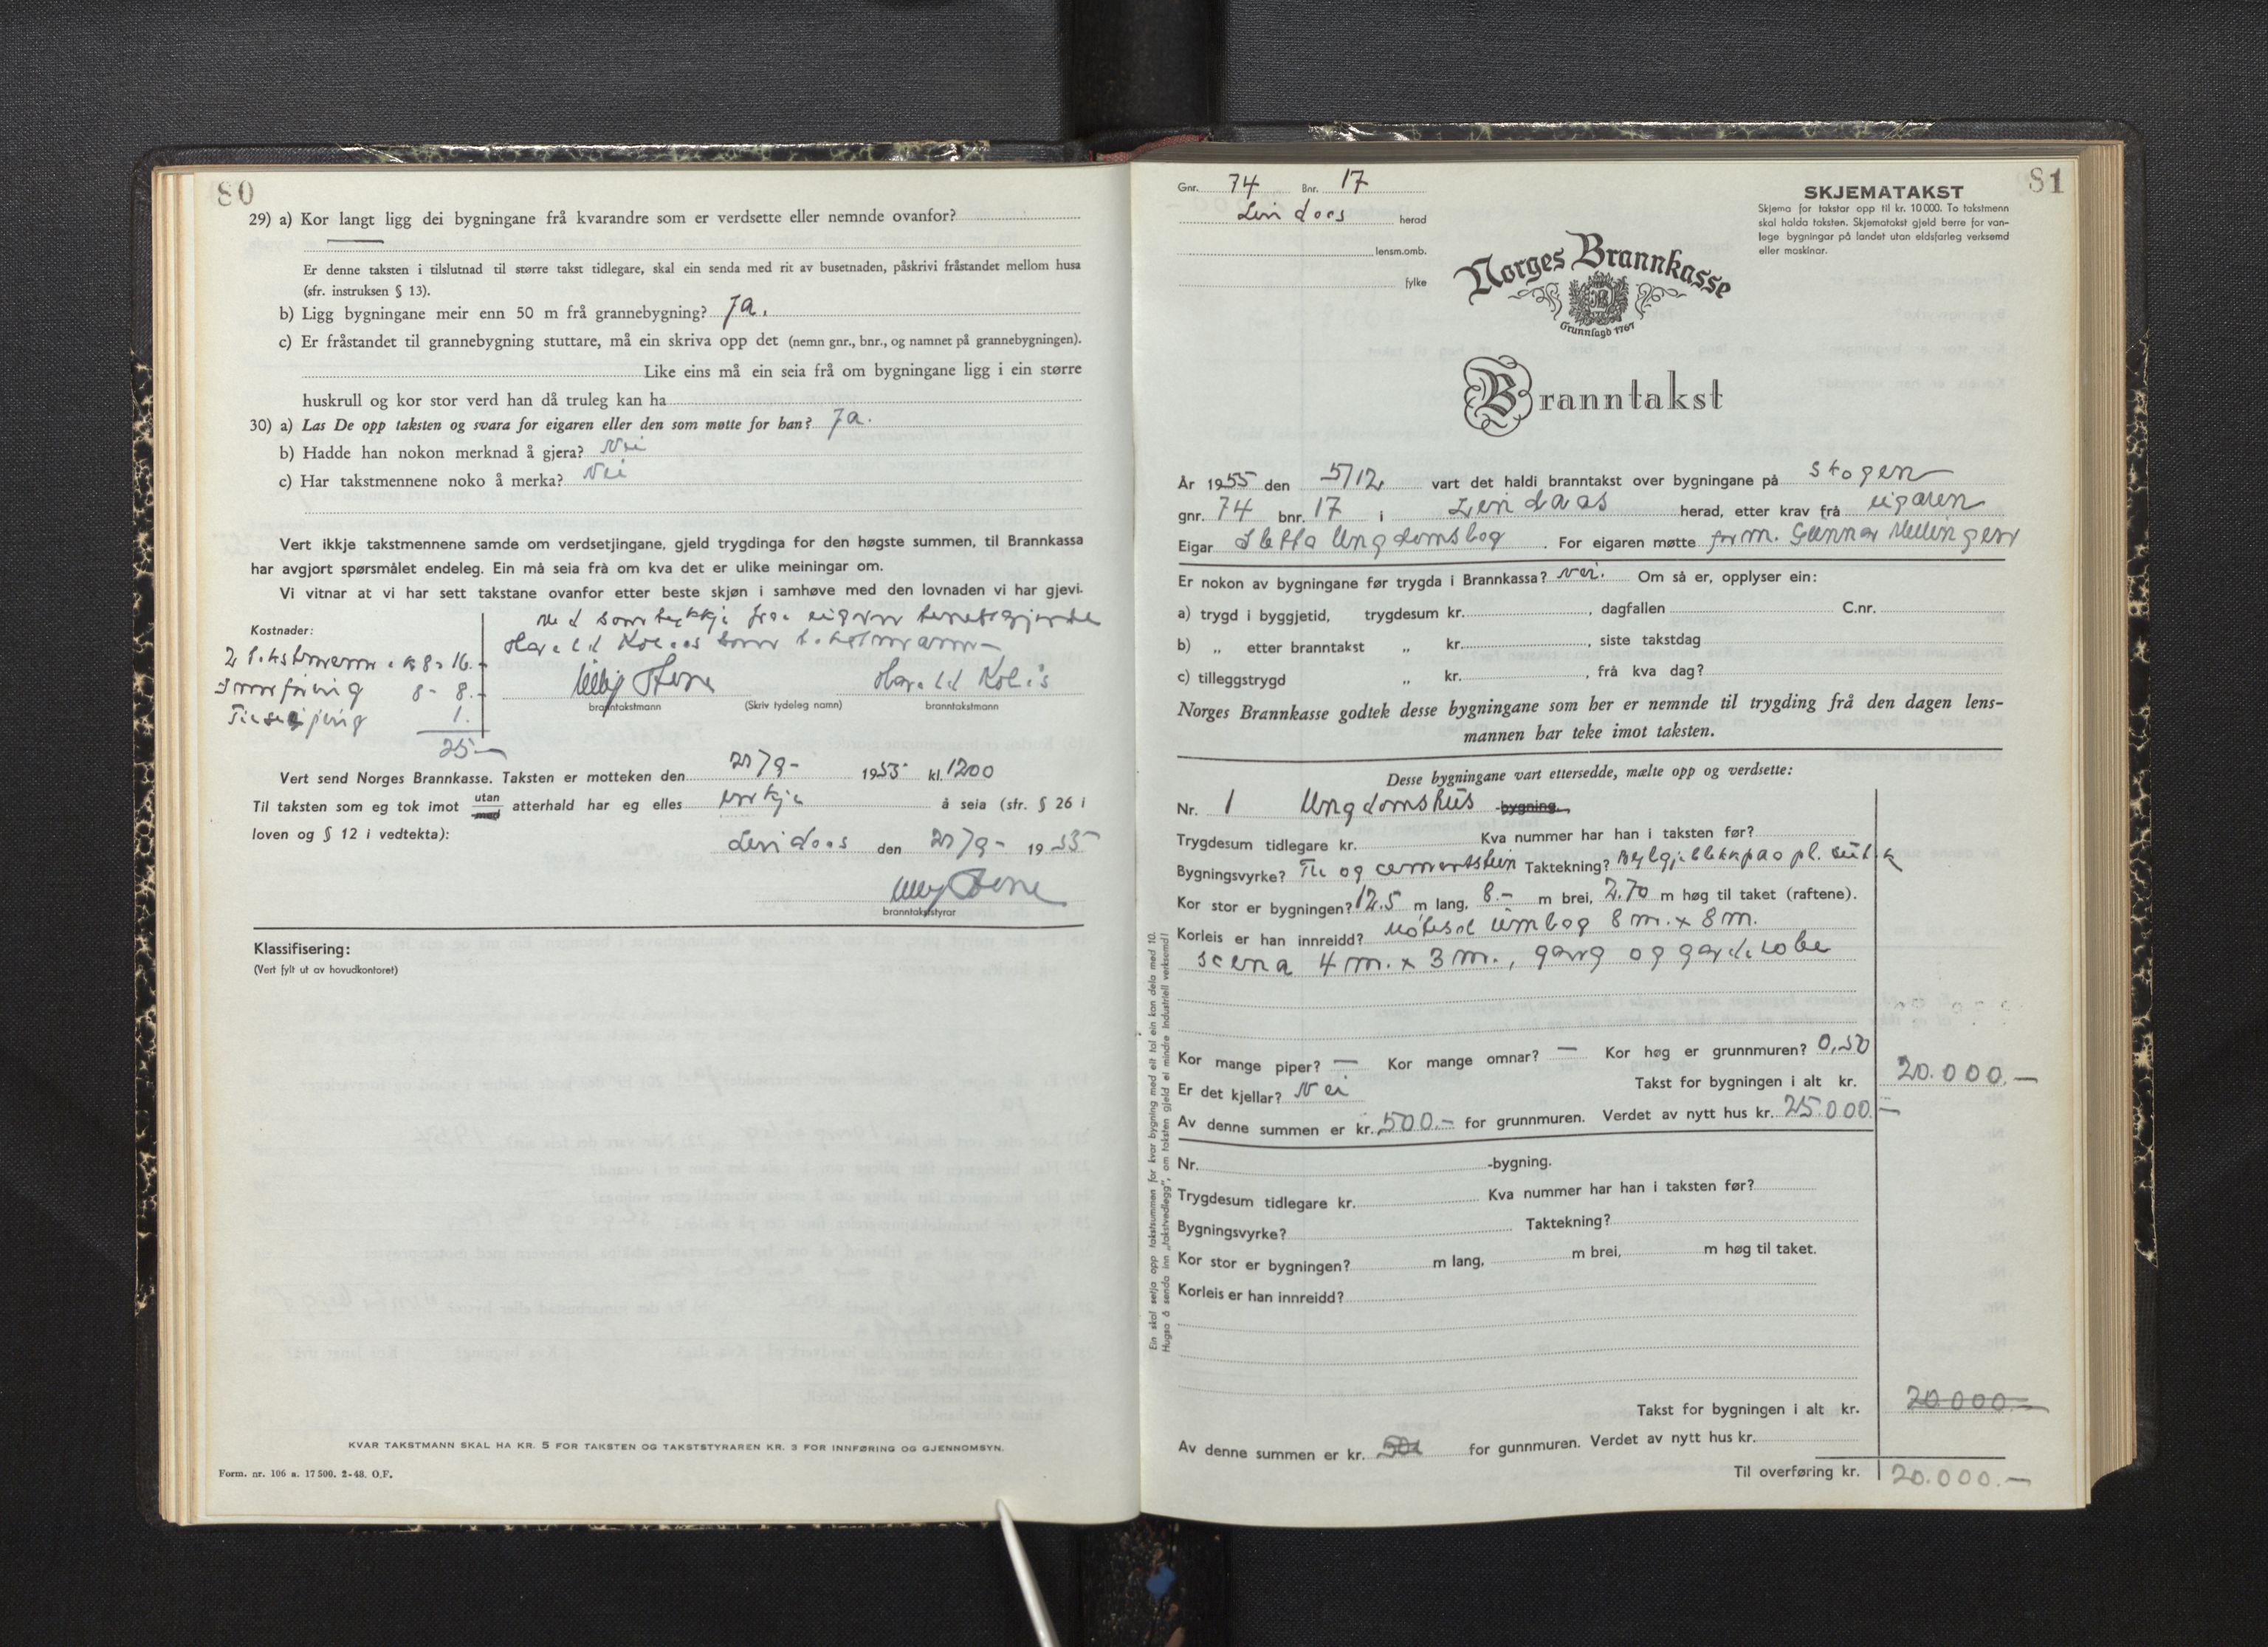 80
29) a) Kor langt ligg dei bygningane frå kvarandre som er verdsette eller nemnde ovanfor?
Er denne taksten i tilslutnad til større takst tidlegare, skal ein senda med rit av busetnaden, påskrivi fråstandet mellom husa
(sfr. instruksen § 13).
b) Ligg bygningane meir enn 50 m frå grannebygning? Ja.
c) Er fråstandet til grannebygning stuttare, må ein skriva opp det (nemn gnr., bnr., og namnet på grannebygningen).
Like eins må ein seia frå om bygningane ligg i ein større
huskrull og kor stor verd han då truleg kan ha
30) a) Las De opp taksten og svara for eigaren eller den som møtte for han? Ja.
b) Hadde han nokon merknad å gjera? Nei
c) Har takstmennene noko å merka? Nei
Vert ikkje takstmennene samde om verdsetjingane, gjeld trygdinga for den høgste summen, til Brannkassa
har avgjort spørsmålet endeleg. Ein må seia frå om kva det er ulike meiningar om.
Vi vitnar at vi har sett takstane ovanfor etter beste skjøn i samhøve med den lovnaden vi har gjevi.
Med samtykkje fra eigar tenestgjorde
Kostnader:
Harald Kolås som takstmann
2 takstmenn a k 8 = 16.-
Harald Kolås
Innføring 8- 8.-
branntakstmann (Skriv tydeleg namn) branntakstmann
1.
25-
Vert send Norges Brannkasse. Taksten er motteken den 20/9- 1955 kl. 1200
Til taksten som eg tok imot utan med atterhald har eg elles ikkje å seia (sfr. § 26 i
loven og § 12 i vedtekta):
Lindaas den 20/9- 1955
branntakststyrar
Klassifisering:
(Vert fylt ut av hovudkontoret)
KVAR TAKSTMANN SKAL HA KR. 5 FOR TAKSTEN OG TAKSTSTYRAREN KR. 3 FOR INNFØRING OG GJENNOMSYN.
Form. nr. 106 a. 17 500. 2-48. O.F.
81
Gnr. 74 Bnr. 17
Lindaas herad
lensm.omb.
fylke
SKJEMATAKST
Skjema for takstar opp til kr. 10 000. To takstmenn
skal halda taksten. Skjematakst gjeld berre for van-
lege bygningar på landet utan eldsfarleg verksemd
eller maskinar.
Norges Brannkasse
Grunnlagd 1767
Branntakst
År 1955 den 5/12 vart det haldi branntakst over bygningane på Skogen
gnr. 74 bnr. 17 i Lindaas herad, etter krav frå eigaren
Eigar Sletta Ungdomslag. For eigaren møtte form. Gunnar Mellingen
Er nokon av bygningane før trygda i Brannkassa? Nei. Om så er, opplyser ein:
a) trygd i byggjetid, trygdesum kr. , dagfallen C.nr.
b) „ etter branntakst „ kr. , siste takstdag
c) tilleggstrygd „ kr. , frå kva dag?
Norges Brannkasse godtek desse bygningane som her er nemnde til trygding frå den dagen lens-
mannen har teke imot taksten.
Desse bygningane vart ettersedde, mælte opp og verdsette:
Nr. 1 Ungdomshus -bygning.
Trygdesum tidlegare kr. Kva nummer har han i taksten før?
Bygningsvyrke? Tre og cementstein Taktekning? Bylgjeblekk pao pl. sutak
Kor stor er bygningen? 12.5 m lang, 8.- m brei, 2.70 m høg til taket (raftene).
Korleis er han innreidd? Møtesal umlag 8 m. x 8 m.
scena 4 m. x 3 m., gang og garderobe
Kor mange piper? — Kor mange omnar? — Kor høg er grunnmuren? 0,50
Er det kjellar? Nei Takst for bygningen i alt kr. 20.000.-
Av denne summen er kr. 500.- for grunnmuren. Verdet av nytt hus kr. 25.000.-
Nr. -bygning.
Trygdesum tidlegare kr. Kva nummer har han i taksten før?
Bygningsvyrke? Taktekning?
Kor stor er bygningen? m lang, m brei, m høg til taket.
Korleis er han innreidd?
Takst for bygningen i alt kr. 20.000.-
Av denne summen er kr. for gunnmuren. Verdet av nytt hus kr.
Til overføring kr. 20.000.-
Ein skal setja opp takstsummen for kvar bygning med eit tal ein kan dela med 10.
Hugsa å senda inn „takstvedlegg", om taksten gjeld ei mindre industriell verksemd!